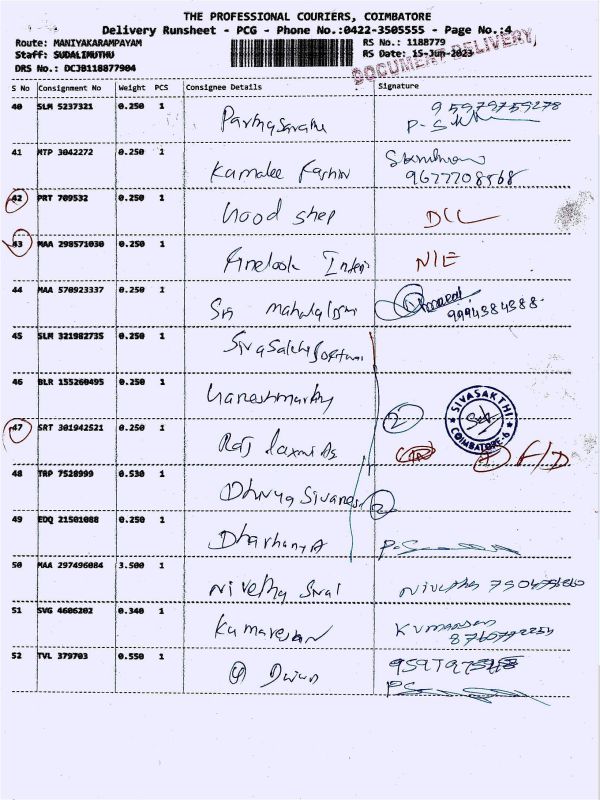 THE PROFESSIONAL COURIERS, COIMBATORE
Delivery Runsheet - PCG - Phone No.:0422-3505555 - Page No.:4
Route: MANIYAKARAMPAYAM RS No.: 1188779
Staff: SUDALIMUTHU RS Date: 15-Jun-2023
DRS No.: DCJB118877904
DOCUMENT DELIVERY
S No Consignment No Weight PCS Consignee Details Signature
40 SLM 5237321 0.250 1 95979759278
P-S
41 MTP 3042272 0.250 1 Kamalee Fashion
9677708568
42 PRT 709532 0.250 1 hood shep DCL
43 MAA 298571030 0.250 1 Finelook Inter NIE
44 MAA 570923337 0.250 1 Sri mahalaxmi
9994384588
45 SLM 321982735 0.250 1 Sivasakthi
46 BLR 155260495 0.250 1 2
SIVASAKTHI
COIMBATORE-6
47 SRT 301942521 0.250 1 Raj Laxmi F/D
48 TRP 7528999 0.530 1 Dhivya Sivanes 2
49 EDQ 21501088 0.250 1 Dharhanya P-S
50 MAA 297496084 3.500 1 Nivetha Sival Nivetha
51 SVG 4606202 0.340 1 Kumaresan Kumaresan
52 TVL 379703 0.550 1
PS